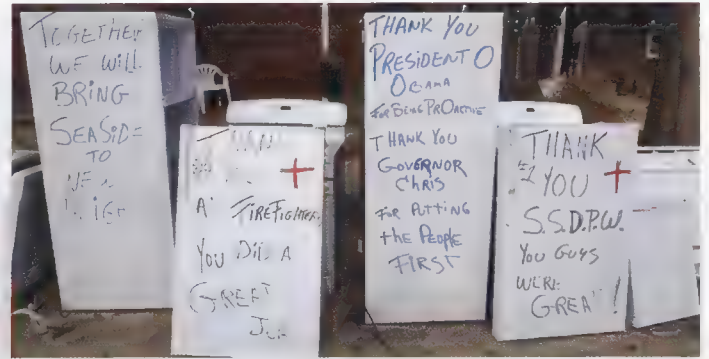 TOGETHER
WE WILL
BRING
SEASIDE
TO
A FIREFIGHTER
YOU DID A
GREET
THANK YOU
PRESIDENT O
OBAMA
FOR BEING PROACTIVE
THANK YOU
GOVERNOR
CHRIS
FOR PUTTING
the PEOPLE
FIRST
THANK
YOU
S.S.D.P.W.
YOU GUYS
WERE
GREAT!